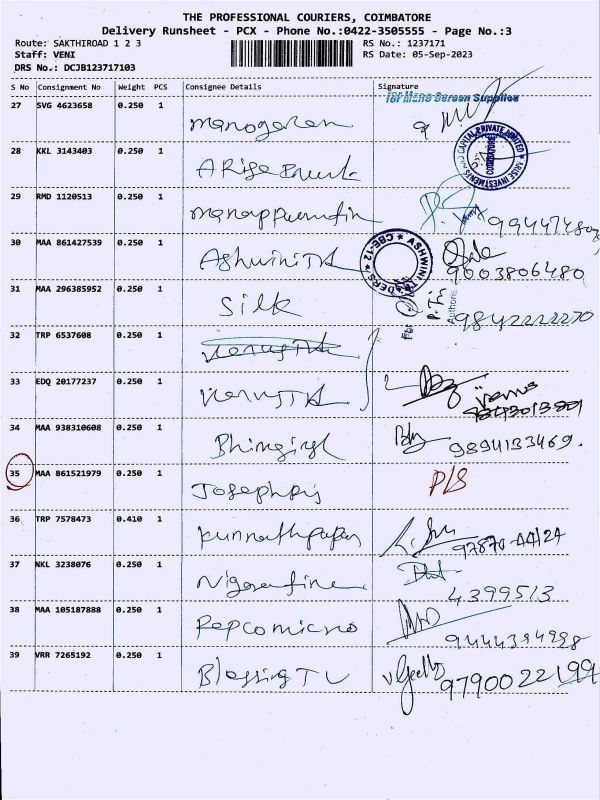 THE PROFESSIONAL COURIERS, COIMBATORE
Delivery Runsheet - PCX - Phone No.:0422-3505555 - Page No.:3
Route: SAKTHIROAD 1 2 3 RS No.: 1237171
Staff: VENI RS Date: 05-Sep-2023
DRS No.: DCJB123717103
S No Consignment No Weight PCS Consignee Details Signature
for Mano Screen Supplies
27 SVG 4623658 0.250 1 Manogaran
28 KKL 3143403 0.250 1 Arise
ARISE INVESTMENTS AND CAPITAL PRIVATE LIMITED
COIMBATORE
29 RMD 1120513 0.250 1
30 MAA 861427539 0.250 1 AshwiniTR 9003806480
ASHWINI TRADERS * CBE-12 *
31 MAA 296385952 0.250 1 Silk 9842222270
For
32 TRP 6537608 0.250 1
33 EDQ 20177237 0.250 1
34 MAA 938310608 0.250 1 9894133469.
35 MAA 861521979 0.250 1 P/S
36 TRP 7578473 0.410 1 97870-44124
37 NKL 3238076 0.250 1 4399513
38 MAA 105187888 0.250 1 Repcomicro 9444394998
39 VRR 7265192 0.250 1 Blessing TV 9790022199